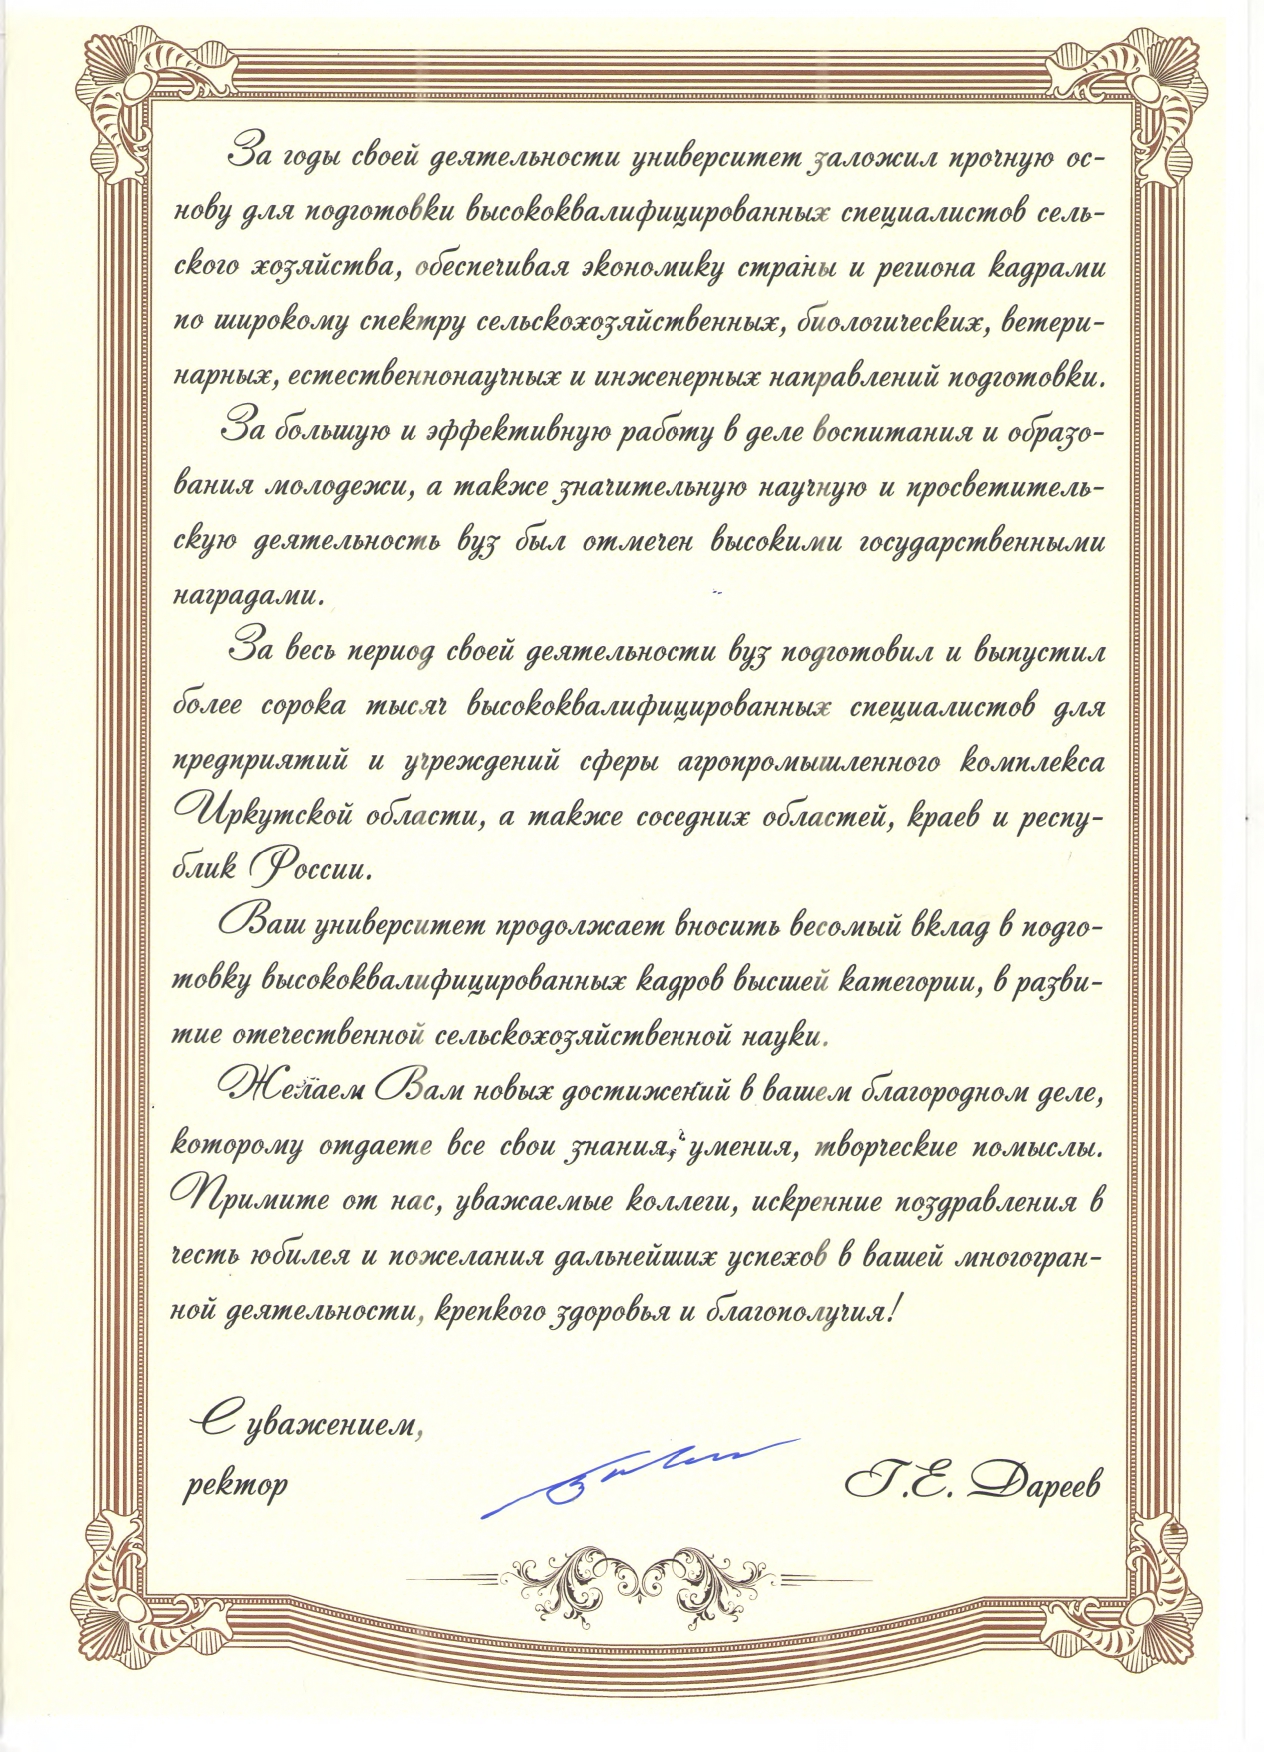 За годы своей деятельности университет заложил прочную ос-
нову для подготовки высококвалифицированных специалистов сель-
ского хозяйства, обеспечивая экономику страны и региона кадрами
по широкому спектру сельскохозяйственных, биологических, ветери-
нарных, естественнонаучных и инженерных направлений подготовки.
За большую и эффективную работу в деле воспитания и образо-
вания молодежи, а также значительную научную и просветитель-
скую деятельность вуз был отмечен высокими государственными
наградами.
За весь период своей деятельности вуз подготовил и выпустил
более сорока тысяч высококвалифицированных специалистов для
предприятий и учреждений сферы агропромышленного комплекса
Иркутской области, а также соседних областей, краев и респу-
блик России.
Ваш университет продолжает вносить весомый вклад в подго-
товку высококвалифицированных кадров высшей категории, в разви-
тие отечественной сельскохозяйственной науки.
Желаем Вам новых достижений в вашем благородном деле,
которому отдаете все свои знания, умения, творческие помыслы.
Примите от нас, уважаемые коллеги, искренние поздравления в
честь юбилея и пожелания дальнейших успехов в вашей многогран-
ной деятельности, крепкого здоровья и благополучия!
С уважением,
ректор Г.Е. Дареев